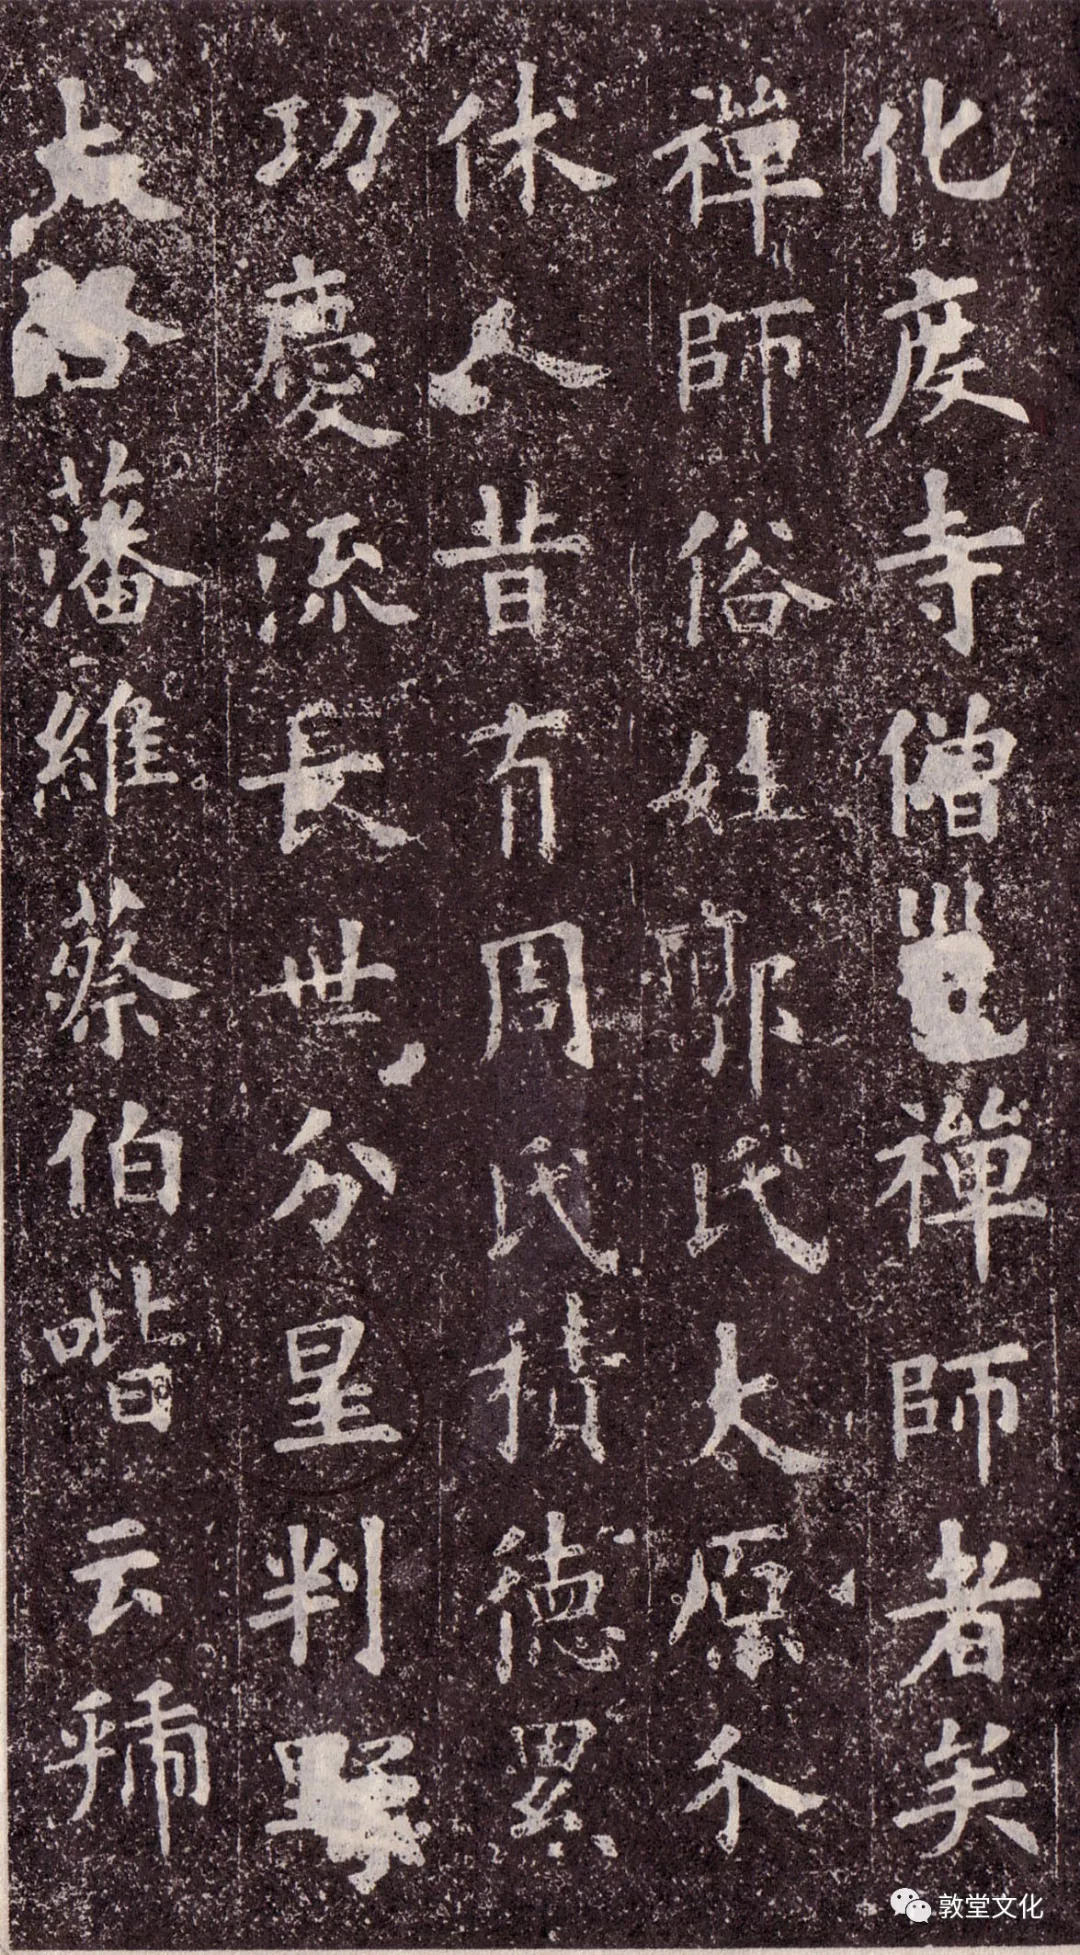 化度寺僧邕禪師者矣
禪師俗姓郭氏太原介
休人昔有周氏積德累
功慶流長世分星判野
藩維蔡伯喈云虢
敦堂文化